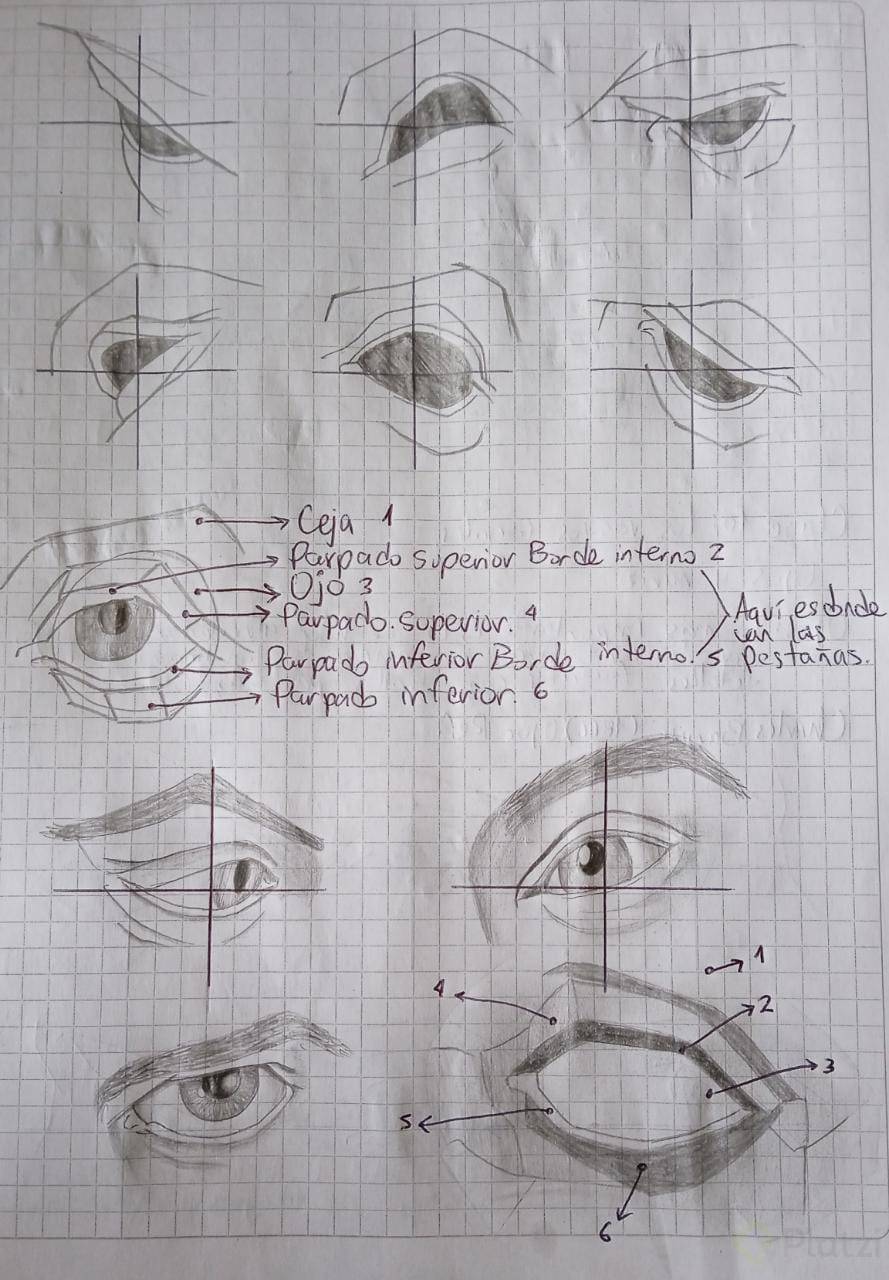 Ceja 1
Parpado superior Borde interno 2
Ojo 3
Parpado.superior. 4
Aquí es donde
van las
pestañas.
Parpado inferior Borde interno. 5
Parpado inferior. 6
1
4
2
3
5
6
Platzi